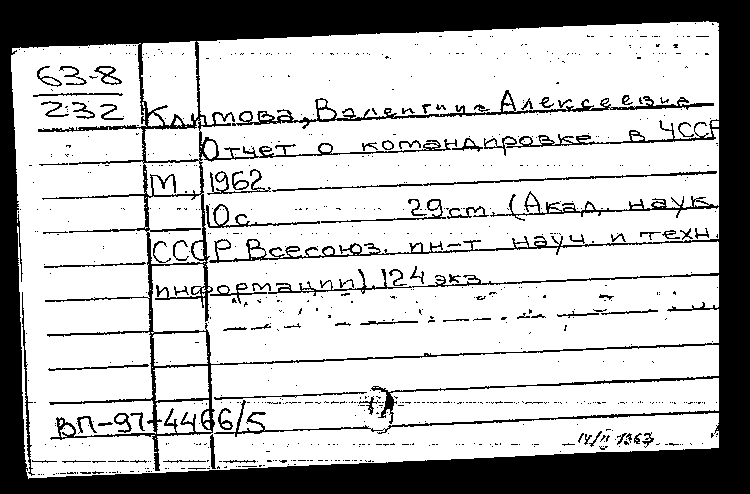 63-8
232
Климова, Валентина Алексеевна
Отчет о командировке в ЧССР
М., 1962.
10с. 29см. (Акад. наук
СССР. Всесоюз. ин-т науч. и техн.
информации). 124 экз.
ВП-97-4466/5
14/II 1963